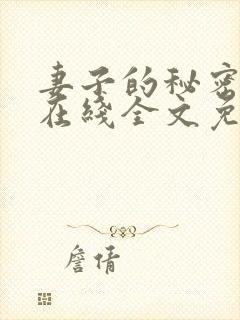 妻子的秘密
在綫全文免
詹倩